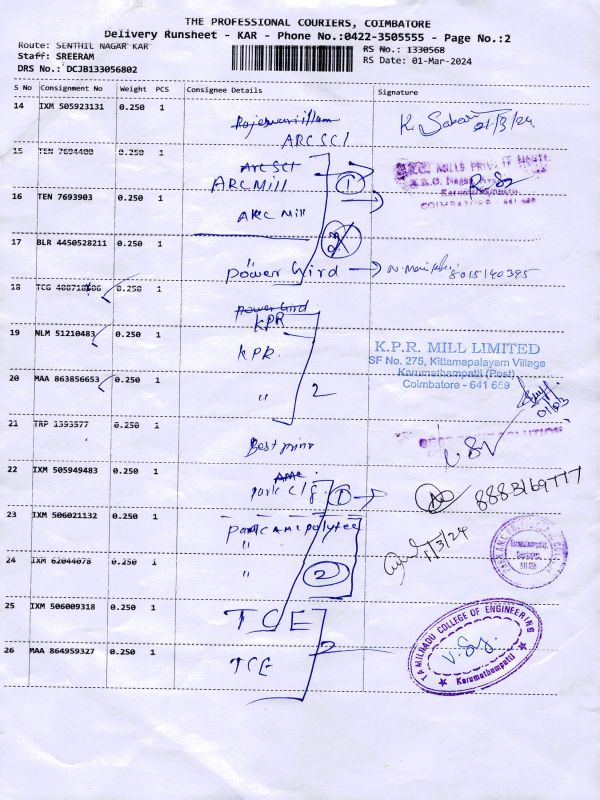 THE PROFESSIONAL COURIERS, COIMBATORE
Delivery Runsheet - KAR - Phone No.:0422-3505555 - Page No.:2
Route: SENTHIL NAGAR KAR
RS No.: 1330568
Staff: SREERAM
RS Date: 01-Mar-2024
DRS No.: DCJB133056802
S No Consignment No Weight PCS Consignee Details Signature
14 IXM 505923131 0.250 1
ARC SCI
21/3/24
15 TEN 7694400 0.250 1
ARC SCI
ARC MILL 1
16 TEN 7693903 0.250 1
ARC Mill
17 BLR 4450528211 0.250 1
"
Power Gird
8015140395
18 TCG 0.250 1
Power Gird
KPR
19 NLM 51210483 0.250 1
KPR.
K.P.R. MILL LIMITED
SF No. 275, Kittamapalayam Village
Karumathampatti (Post)
Coimbatore - 641 659
20 MAA 863856653 0.250 1
" 2
01/03
21 TRP 1393577 0.250 1
22 IXM 505949483 0.250 1
1
8883169777
23 IXM 506021132 0.250 1
1/3/24
24 IXM 62044078 0.250 1
"
2
25 IXM 506009318 0.250 1
TCE
TAMILNADU COLLEGE OF ENGINEERING
Karumathampatti
26 MAA 864959327 0.250 1
TCE
2